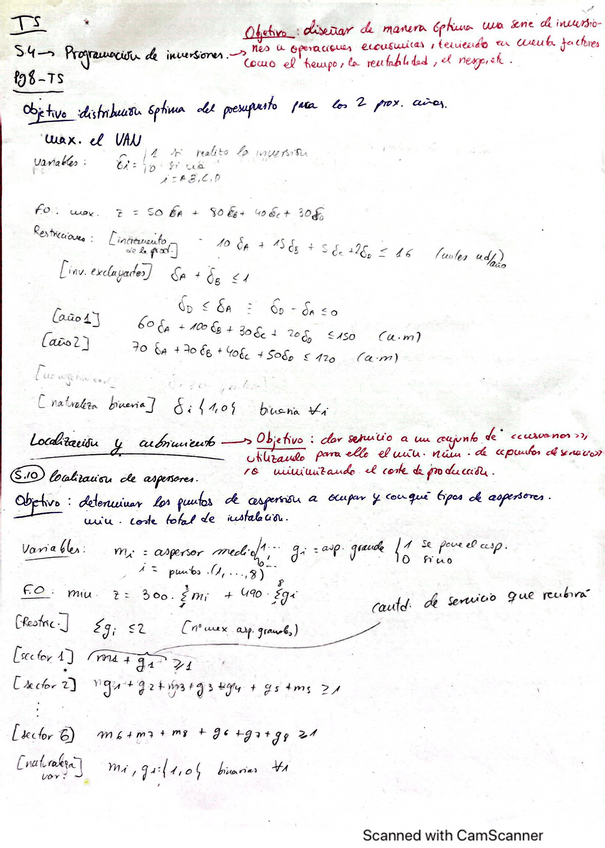 TS
Objetivo: diseñar de manera óptima una serie de inversio-
nes u operaciones económicas, teniendo en cuenta factores
como el tiempo, la rentabilidad, el riesgo, etc.
S4 → Programación de inversiones.
Pg8-TS
Objetivo: distribución óptima del presupuesto para los 2 prox. años.
max. el VAN
variables: δi = { 1 si realizo la inversión
0 si no
i = A, B, C, D
F.O: max. z = 50 δA + 80 δB + 40 δC + 30 δD
Restricciones: [incremento de la prod.] 10 δA + 15 δB + 5 δC + 2 δD ≤ 16 (miles ud/año)
[inv. excluyentes] δA + δB ≤ 1
δD ≤ δA ; δD - δA ≤ 0
[año 1] 60 δA + 100 δB + 30 δC + 20 δD ≤ 150 (u.m)
[año 2] 70 δA + 70 δB + 40 δC + 50 δD ≤ 120 (u.m)
[naturaleza binaria] δi {1,0} binaria ∀i
Localización y cubrimiento → Objetivo: dar servicio a un conjunto de "usuarios",
utilizando para ello el mín. núm. de puntos de servicio
o minimizando el coste de producción.
S.10 localización de aspersores.
Objetivo: determinar los puntos de aspersión a ocupar y con qué tipos de aspersores.
min. coste total de instalación.
Variables: mi = aspersor medio { 1... 0 gi = asp. grande { 1 se pone el asp.
0 si no
i = puntos (1, ..., 8)
F.O: min z = 300 · Σ mi + 490 · Σ gi
cantd. de servicio que recibirá
[Restric.] Σ gi ≤ 2 (nº max asp. grandes)
[sector 1] m1 + g1 ≥ 1
[sector 2] g1 + g2 + m3 + g3 + g4 + g5 + m5 ≥ 1
⋮
[sector 6) m6 + m7 + m8 + g6 + g7 + g8 ≥ 1
[naturaleza var.] mi, gi {1,0} binarias ∀i
Scanned with CamScanner